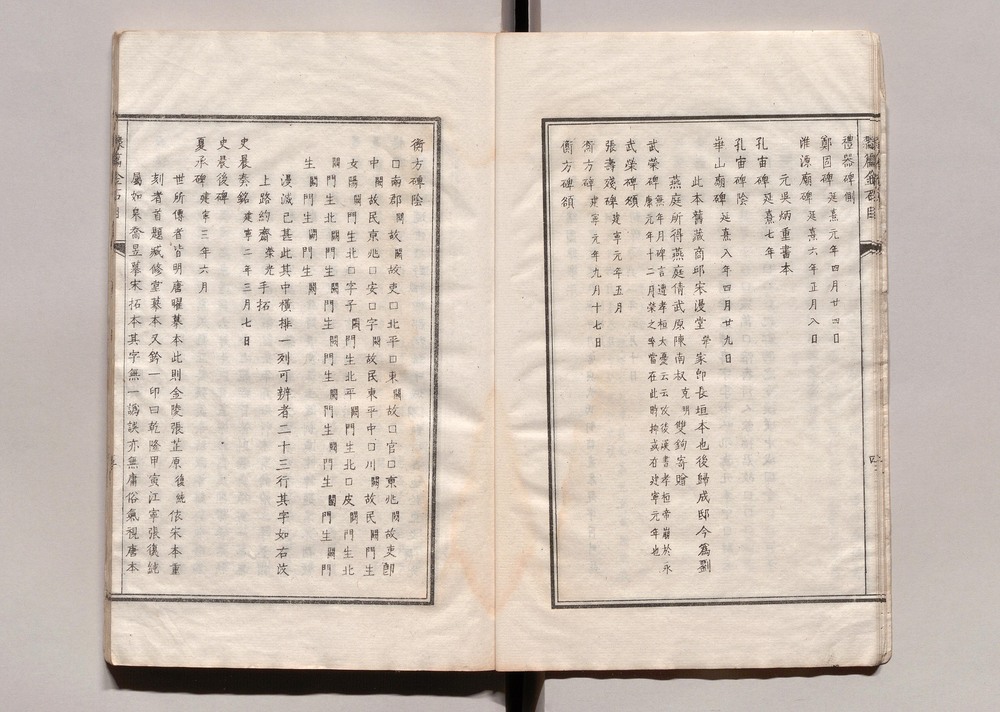 禮器碑側
鄭固碑 延熹元年四月廿四日
淮源廟碑 延熹六年正月八日
元吳炳重書本
孔宙碑 延熹七年
孔宙碑陰
華山廟碑 延熹八年四月廿九日
此本舊藏商邱宋漫堂犖家即長垣本也後歸成邸今為劉
燕庭所得燕庭倩武原陳南叔克明雙鉤寄贈
武榮碑 無年月碑言遭孝桓大憂云云攷後漢書孝桓帝崩於永
康元年十二月榮之卒當在此時抑或在建寧元年也
武榮碑頌
張壽殘碑 建寧元年五月
衡方碑 建寧元年九月十七日
衡方碑頌
衡方碑陰
口南郡闕故闕故吏口北平口東闕故口官口東兆闕故吏卽
中闕故民京兆口安口字闕故民東平中口川闕故民闕門生
女陽闕門生北口字子闕門生北平闕門生北口皮闕門生北
闕門生闕門生闕門生闕門生闕門生闕門生闕門
生闕門生闕門生闕
漫滅已甚此其中橫排一列可辨者二十三行其字如右汝
上路約齋榮光手拓
史晨奏銘 建寧二年三月七日
史晨後碑
夏承碑 建寧三年六月
世所傳者皆明唐曜摹本此則金陵張芷原復純依宋本重
刻者首題臧修室摹本又鈐一印曰乾隆甲寅江寧張復純
屬如皋喬昱摹宋拓本其字無一譌誤亦無庸俗氣視唐本